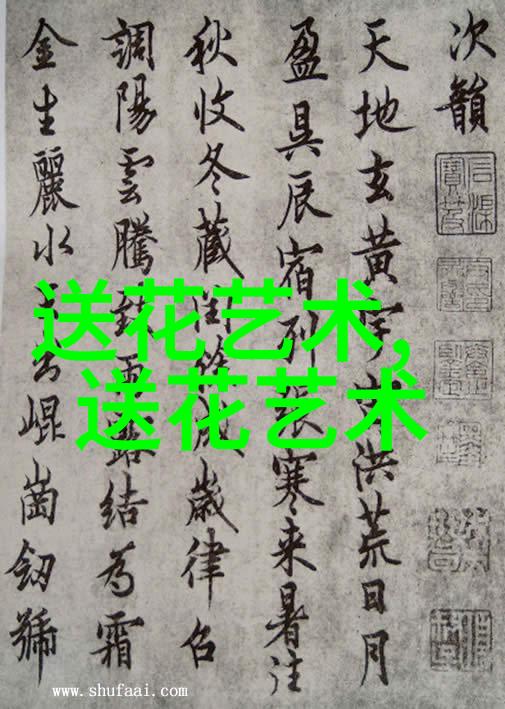 次韻
天地玄黄宇宙洪荒日月
盈昃辰宿列張寒来暑往
秋收冬藏閏餘成歲律召
調陽雲騰致雨露結為霜
金生麗水玉出崐崗劒號
送花艺术,
送花艺术
www.shufaai.com